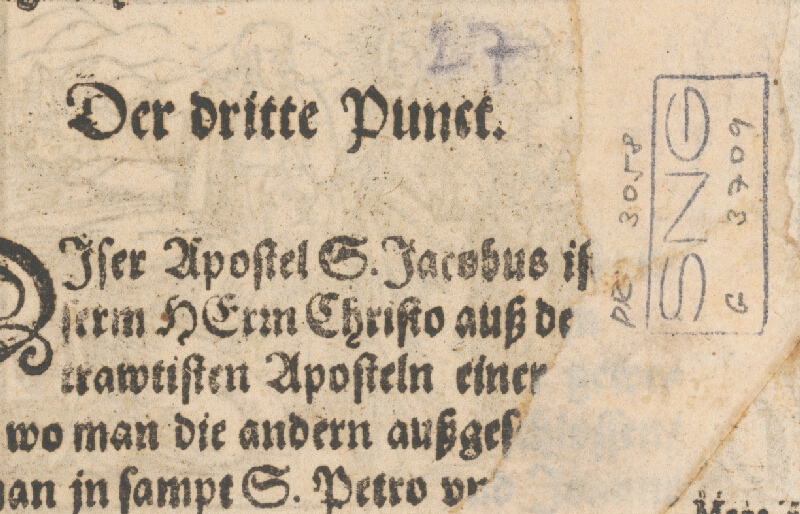 27
Der dritte Punct.
Jser Apostel S. Jacobus ist
serm HErrn Christo auß de
trawtisten Aposteln einer
wo man die andern außges
man jn sampt S. Petro vnd
SNG
G 3709
DK 3058